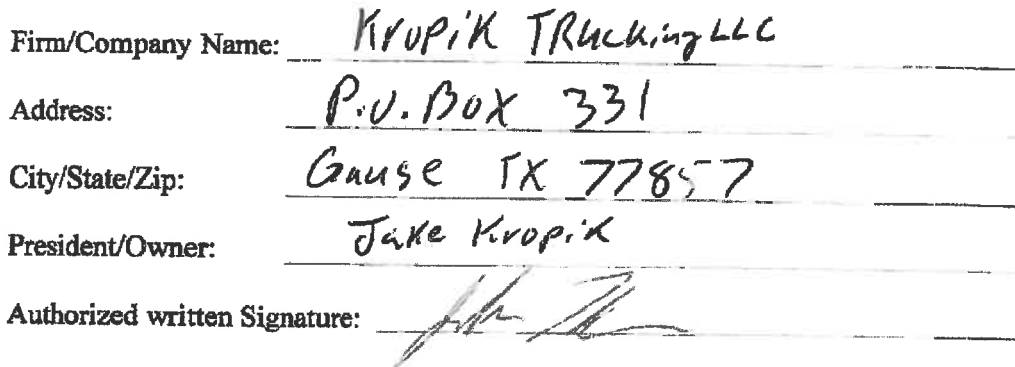 Firm/Company Name: Kropik TRucking LLC
Address: P.O. Box 331
City/State/Zip: Gause TX 77857
President/Owner: Jake Kropik
Authorized written Signature: